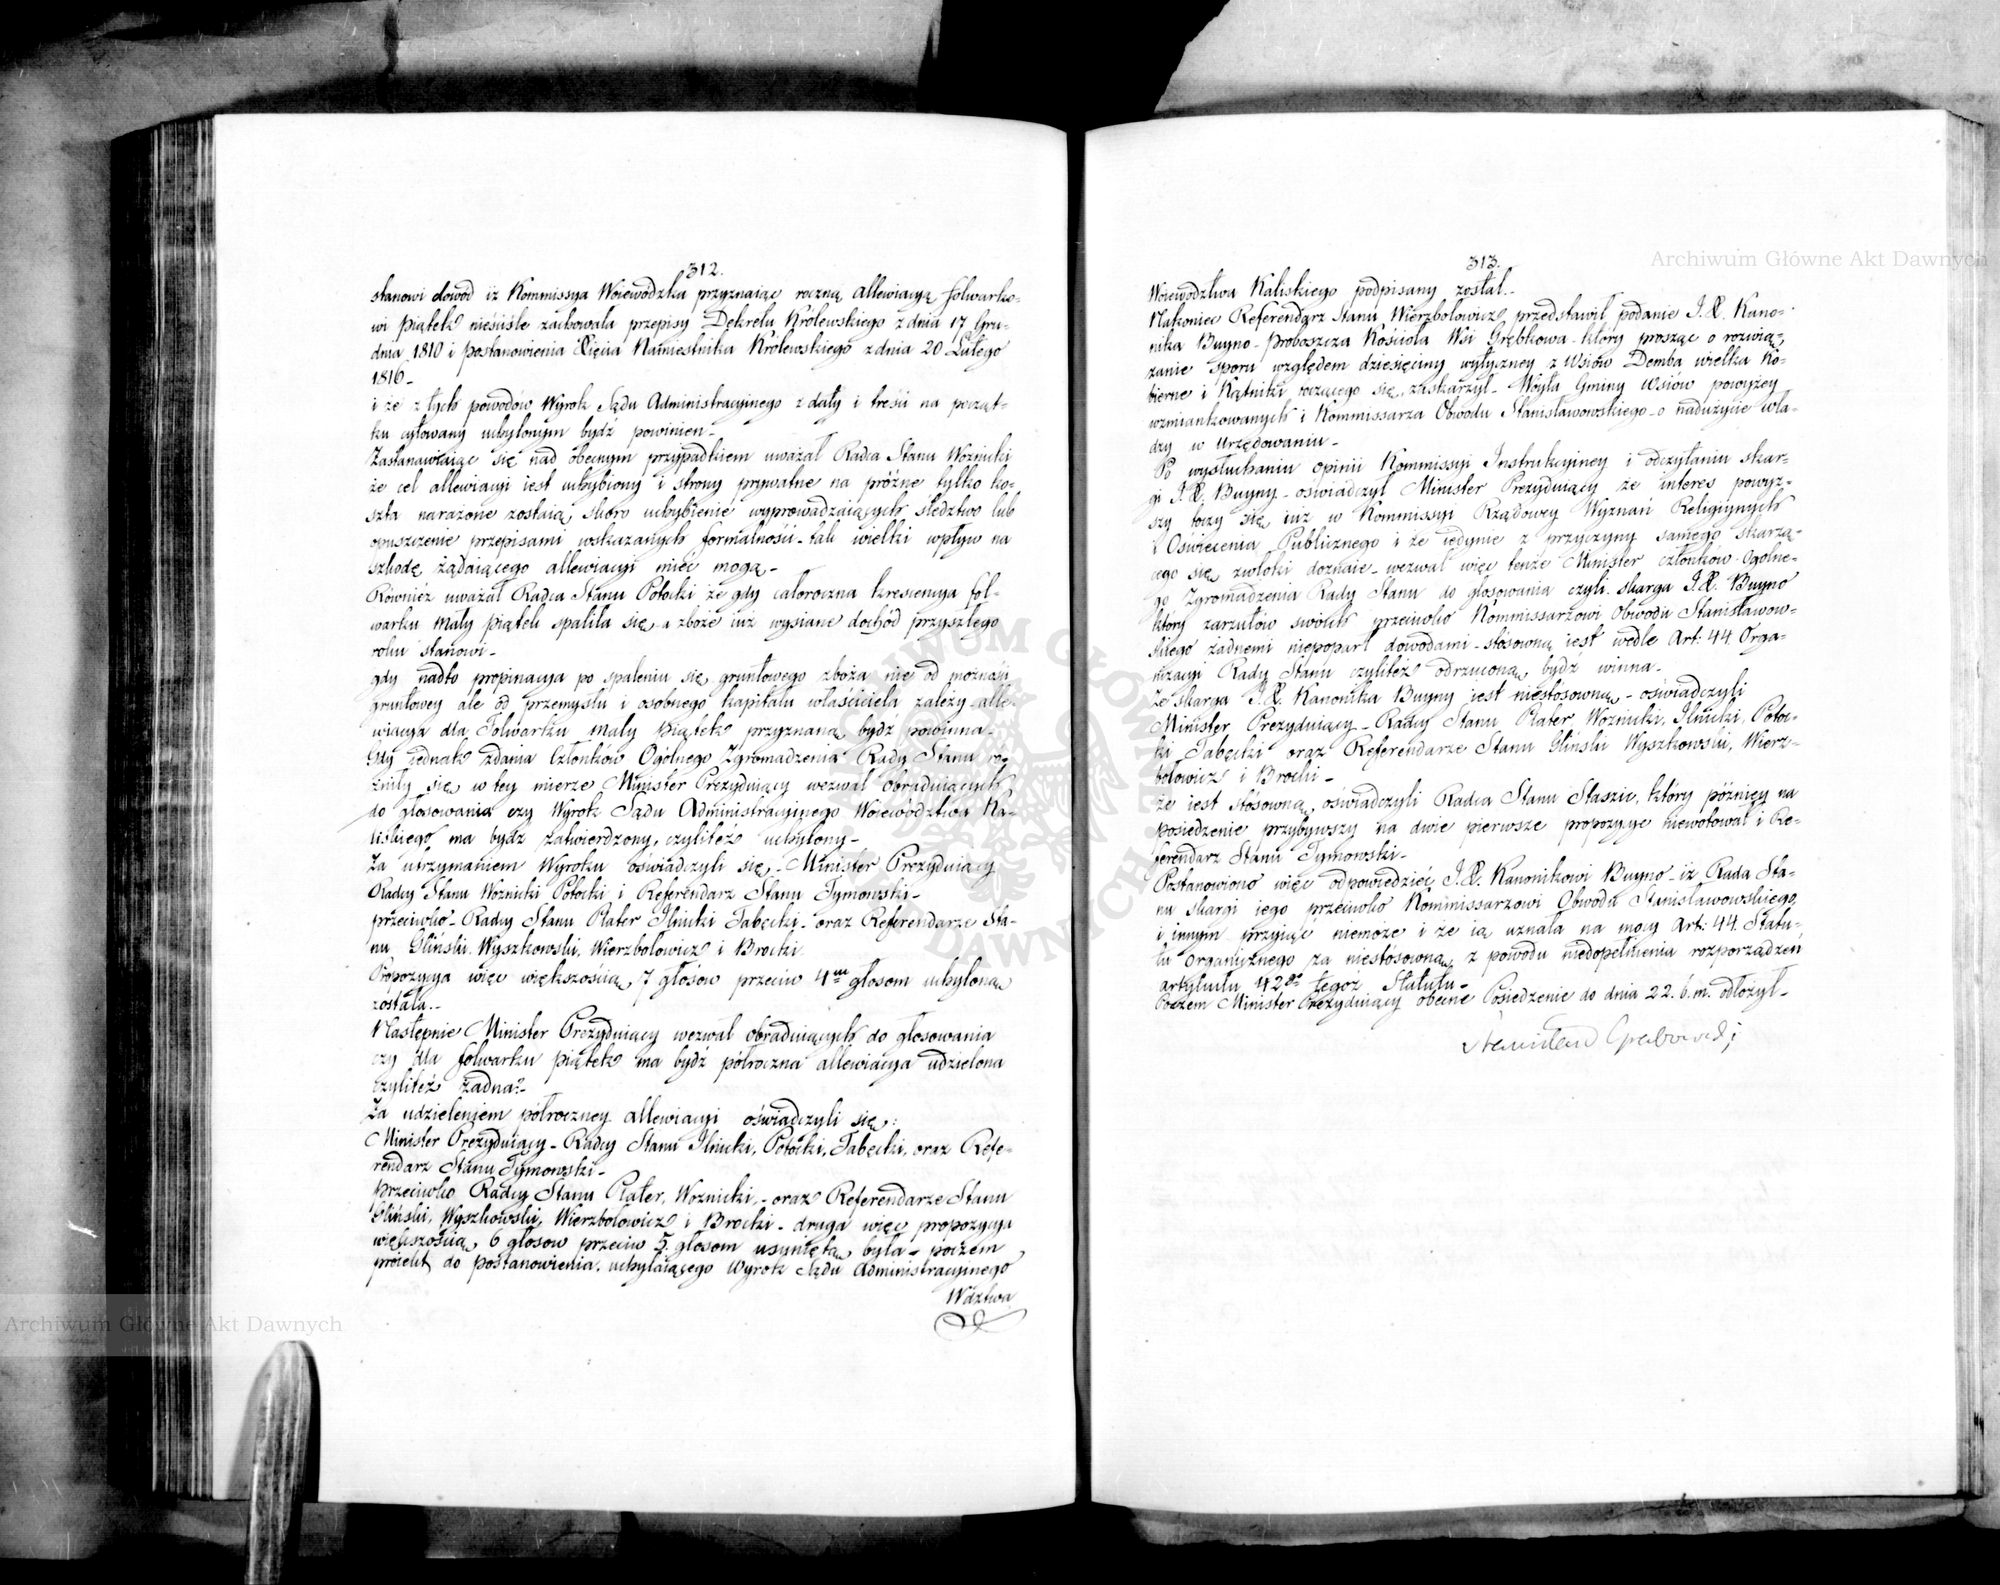 312.
stanowi dowód iż Kommissya Woiewódzka przyznaiąc roczną allewiacyą folwarko-
wi Piątek nieściśle zachowała przepisy Dekretu Królewskiego z dnia 17 Gru-
dnia 1810 i postanowienia Xięcia Namiestnika Królewskiego z dnia 20 Lutego
1816-
i że z tych powodów Wyrok Sądu Administracyinego z daty i treści na począt-
ku cytowany uchylonym bydź powinien-
Zastanawiaiąc się nad obecnym przypadkiem uważał Radca Stanu Woźnicki
że cel allewiacyi iest uchybiony i strony prywatne na próżne tylko ko-
szta narażone zostaią, skoro uchybienie wyprowadzaiących śledztwo lub
opuszczenie przepisami wskazanych formalności- tak wielki wpływ na
szkodę żądaiącego allewiacyi mieć mogą-
Również uważał Radca Stanu Potocki że gdy całoroczna krescencya fol-
warku Mały Piątek spaliła się- a zboże iuż wysiane dochód przyszłego
roku stanowi-
gdy nadto propinacya po spaleniu się gruntowego zboża nie od możności
gruntowey ale od przemysłu i osobnego kapitału właściciela zależy- alle-
wiacya dla Folwarku Mały Piątek przyznaną bydź powinna-
Gdy iednak zdania Członków Ogólnego Zgromadzenia Rady Stanu ró-
żniły się w tey mierze Minister Prezyduiący wezwał obraduiących
do głosowania czy Wyrok Sądu Administracyinego Woiewództwa Ka-
liskiego ma bydź zatwierdzony, czyliteż uchylony-
Za utrzymaniem Wyroku oświadczyli się- Minister Prezyduiący
Radcy Stanu Woźnicki Potocki i Referendarz Stanu Tymowski-
przeciwko- Radcy Stanu Plater Ilnicki Tabęcki- oraz Referendarze Sta-
nu Gliński, Wyszkowski, Wierzbołowicz i Brocki
Propozycya więc większością 7 głosów przeciw 4m głosom uchyloną
została.-
Następnie Minister Prezyduiący wezwał obraduiących do głosowania
czy dla folwarku Piątek ma bydź półroczna allewiacya udzielona
czyliteż żadna?-
Za udzieleniem półroczney allewiacyi oświadczyli się:
Minister Prezyduiący- Radcy Stanu Ilnicki, Potocki, Tabęcki, oraz Refe-
rendarz Stanu Tymowski-
przeciwko Radcy Stanu Plater, Woźnicki,- oraz Referendarze Stanu
Gliński, Wyszkowski, Wierzbołowicz i Brocki- druga więc propozycya
większością 6 głosow przeciw 5. głosom usuniętą była- poczem
proiekt do postanowienia, uchylaiącego Wyrok Sądu Administracyinego
Wdztwa
313.
Woiewództwa Kaliskiego podpisany został.-
Nakoniec Referendarz Stanu Wierzbołowicz przedstawił podanie J.X. Kano-
nika Buyno- Proboszcza Kościoła Wsi Grębkowa- który prosząc o rozwią-
zanie sporu względem dziesięciny wytyczney z Wsiów Demba wielka Ko-
bierne i Kątniki toczącego się, zaskarżył- Wóyta Gminy Wsiów powyżey
wzmiankowanych i Kommissarza Obwodu Stanisławowskiego- o nadużycie wła-
dzy w Urzędowaniu-
Po wysłuchaniu opinii Kommissyi Instrukcyiney i odczytaniu skar-
gi J.X. Buyny- oświadczył Minister Prezyduiący że interes powyż-
szy toczy się iuż w Kommissyi Rządowey Wyznań Religiynych
i Oświecenia Publicznego i że iedynie z przyczyny samego skarżą-
cego się zwłoki doznaie- wezwał więc tenże Minister członków Ogólne-
go Zgromadzenia Rady Stanu do głosowania czyli skarga J.X. Buyno
który zarzutów swoich przeciwko Kommissarzowi Obwodu Stanisławow-
skiego żadnemi niepoparł dowodami- stósowną iest wedle Art: 44 Orga-
nizacyi Rady Stanu czyliteż odrzuconą bydź winna-
Że skarga J.X. Kanonika Buyny iest niestósowną- oświadczyli
Minister Prezyduiący- Radcy Stanu Plater, Woźnicki, Ilnicki, Potoc-
ki Tabęcki oraz Referendarze Stanu Gliński Wyszkowski, Wierz-
bołowicz i Brocki-
że iest stósowną, oświadczyli Radca Stanu Staszic, który późniey na
posiedzenie przybywszy na dwie pierwsze propozycye niewotował i Re-
ferendarz Stanu Tymowski-
Postanowiono więc odpowiedzieć J.X. Kanonikowi Buyno- iż Rada Sta-
nu skargi iego przeciwko Kommissarzowi Obwodu Stanisławowskiego,
i innym przyiąć niemoże i że ią uznała na mocy Art: 44. Statu-
tu Organicznego za niestósowną z powodu niedopełnienia rozporządzeń
artykułu 42go tegoż Statutu-
Poczem Minister Prezyduiący obecne Posiedzenie do dnia 22. b.m. odłożył-
Stanisław Grabowski
Archiwum Główne Akt Dawnych
Archiwum Główne Akt Dawnych
ARCHIWUM GŁÓWNE AKT DAWNYCH